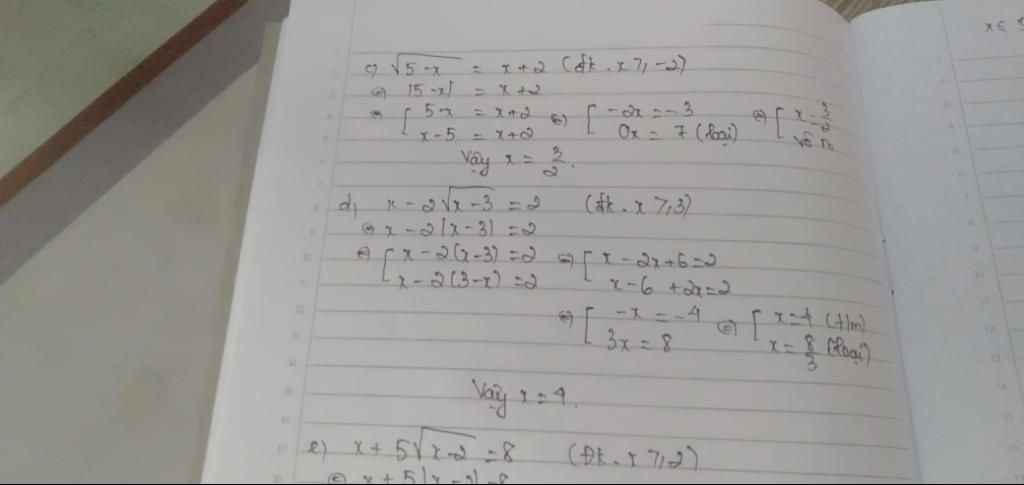 x ∈
c) √(5-x) = x+2 (đk. x ≥ -2)
⇔ |5-x| = x+2
⇔ [ 5-x = x+2 ⇔ [ -2x = -3 ⇔ [ x = 3/2
x-5 = x+2 0x = 7 (loại) vô n
Vậy x = 3/2.
d, x - 2√(x-3) = 2 (đk. x ≥ 3)
⇔ x - 2|x-3| = 2
⇔ [ x - 2(x-3) = 2 ⇔ [ x - 2x + 6 = 2
x - 2(3-x) = 2 x - 6 + 2x = 2
⇔ [ -x = -4 ⇔ [ x = 4 (t/m)
3x = 8 x = 8/3 (loại)
Vậy x = 4.
e) x + 5√(x-2) = 8 (Đk. x ≥ 2)
⇔ x + 5|x-2| = 8